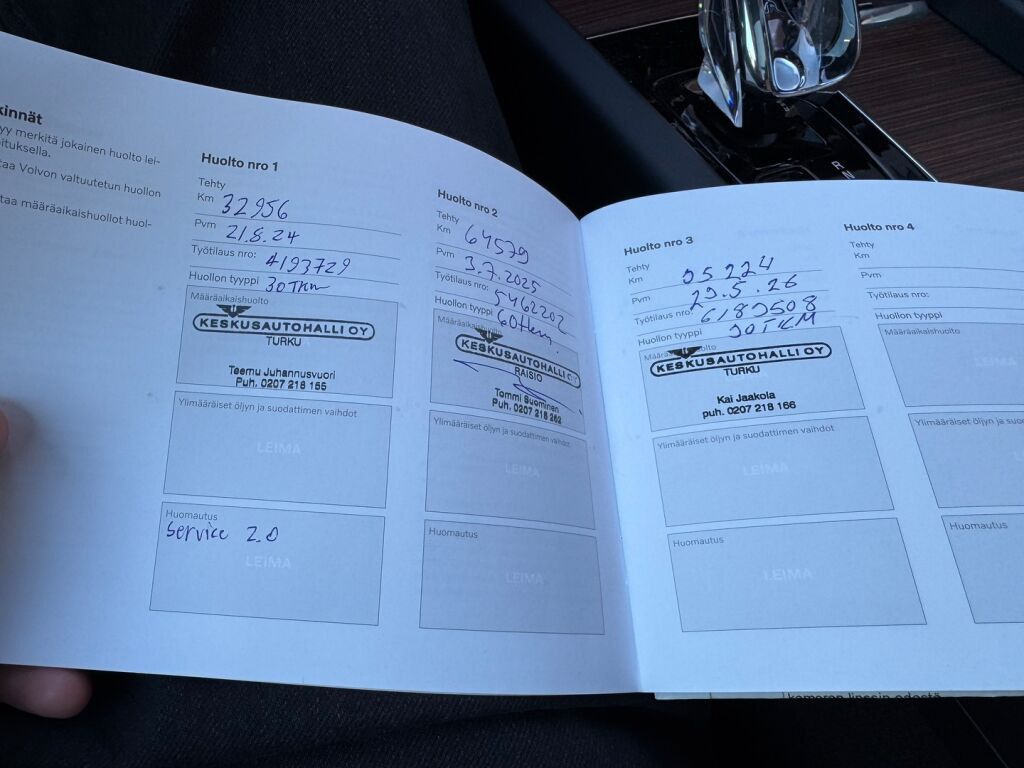 kinnät
yy merkitä jokainen huolto lei-
ituksella.
taa Volvon valtuutetun huollon
taa määräaikaishuollot huol-
Huolto nro 1
Tehty
Km 32956
Pvm 21.8.24
Työtilaus nro: 4193729
Huollon tyyppi 30TKm
Määräaikaishuolto
KESKUSAUTOHALLI OY
TURKU
Teemu Juhannusvuori
Puh. 0207 218 155
Ylimääräiset öljyn ja suodattimen vaihdot
LEIMA
Huomautus
Service 2.0
LEIMA
Huolto nro 2
Tehty
Km 64579
Pvm 3.7.2025
Työtilaus nro: 5462202
Huollon tyyppi 60tkm
Määräaikaishuolto
KESKUSAUTOHALLI OY
RAISIO
Tommi Suominen
Puh. 0207 218 262
Ylimääräiset öljyn ja suodattimen vaihdot
LEIMA
Huomautus
LEIMA
Huolto nro 3
Tehty
Km 95224
Pvm 29.5.26
Työtilaus nro: 6189508
Huollon tyyppi 90TKM
Määräaikaishuolto
KESKUSAUTOHALLI OY
TURKU
Kai Jaakola
puh. 0207 218 166
Ylimääräiset öljyn ja suodattimen vaihdot
LEIMA
Huomautus
LEIMA
Huolto nro 4
Tehty
Km
Pvm
Työtilaus nro:
Huollon tyyppi
Määräaikaishuolto
LEIMA
Ylimääräiset öljyn ja suo
LEIMA
Huomautus
LEIMA
kameran linssin edestä
R
N